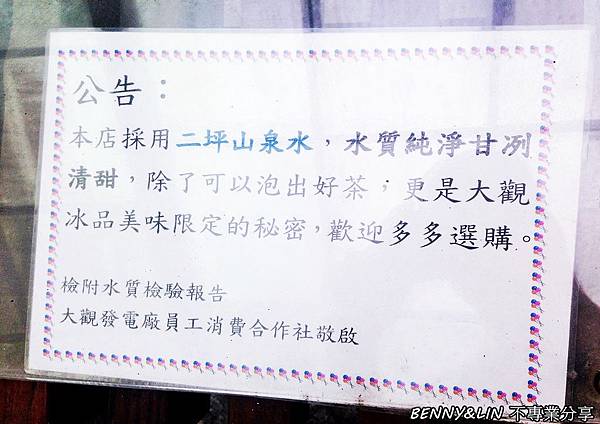 公告：
本店採用二坪山泉水，水質純淨甘冽
清甜，除了可以泡出好茶，更是大觀
冰品美味限定的秘密，歡迎多多選購。
檢附水質檢驗報告
大觀發電廠員工消費合作社敬啟
BENNY&LIN 不專業分享